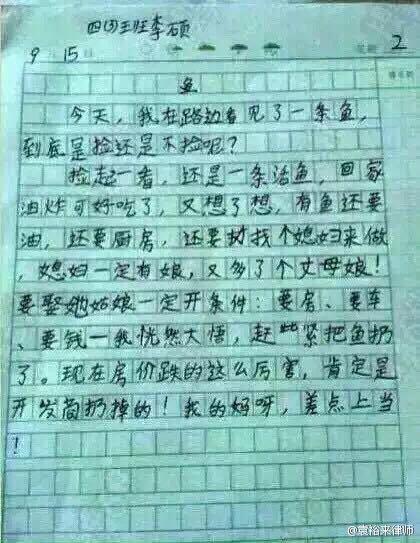 四(3)班李硕
9 15日 2
鱼
今天，我在路边看见了一条鱼，
到底是捡还是不捡呢？
捡起一看，还是一条活鱼，回家
油炸可好吃了，又想了想，有鱼还要
油，还要厨房，还要找个媳妇来做
，媳妇一定有娘，又多了个丈母娘！
要娶她姑娘一定开条件：要房、要车
、要钱一我恍然大悟，赶紧把鱼扔
了。现在房价跌的这么厉害，肯定是
开发商扔掉的！我的妈呀，差点上当
！
@袁裕来律师